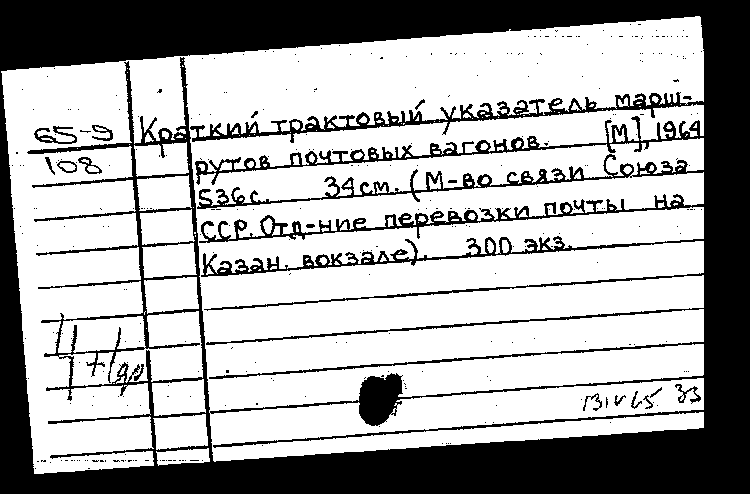 65-9 Краткий трактовый указатель марш-
108 рутов почтовых вагонов. [М.], 1964
536с. 34см. (М-во связи Союза
ССР. Отд-ние перевозки почты на
Казан. вокзале). 300 экз.